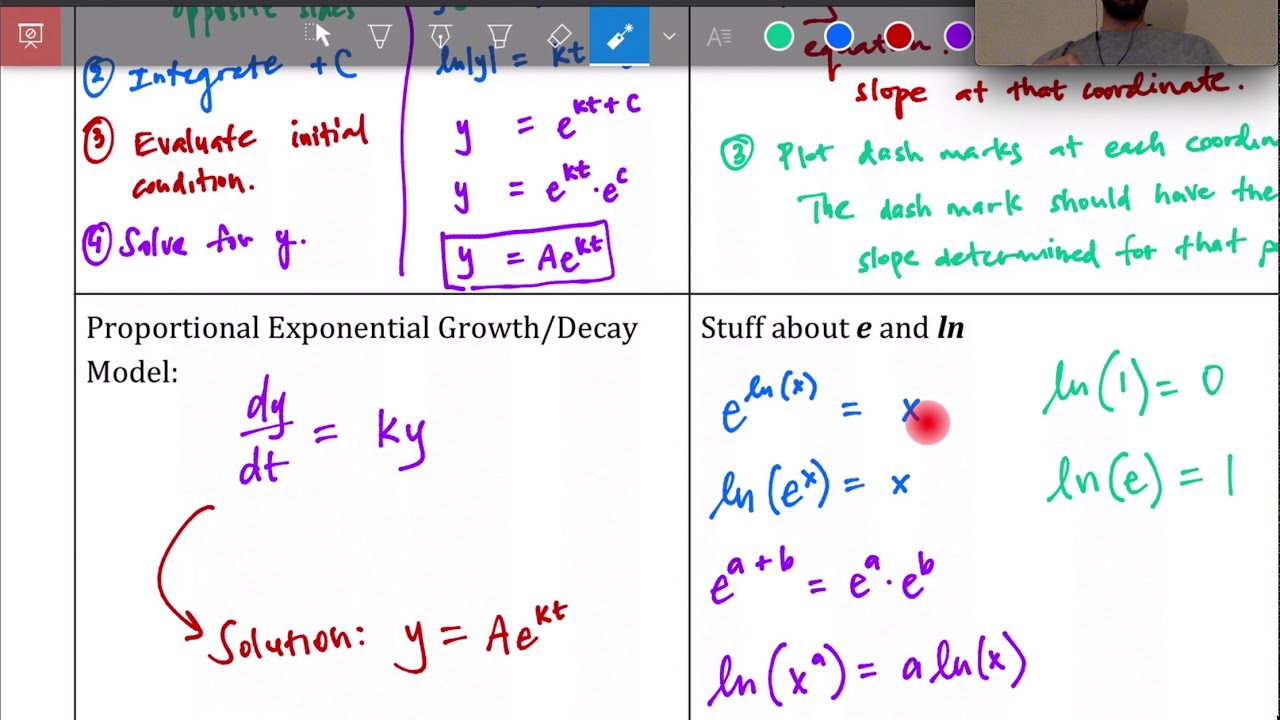 opposite sides
② Integrate + C
③ Evaluate initial
condition.
④ Solve for y.
ln|y| = kt
y = e^{kt + C}
y = e^{kt} · e^{C}
y = Ae^{kt}
equation.
slope at that coordinate.
③ Plot dash marks at each
The dash mark should have the
slope determined for that
Proportional Exponential Growth/Decay
Model:
dy/dt = ky
Solution: y = Ae^{kt}
Stuff about e and ln
e^{ln(x)} = x
ln(e^x) = x
e^{a + b} = e^a · e^b
ln(x^a) = a ln(x)
ln(1) = 0
ln(e) = 1